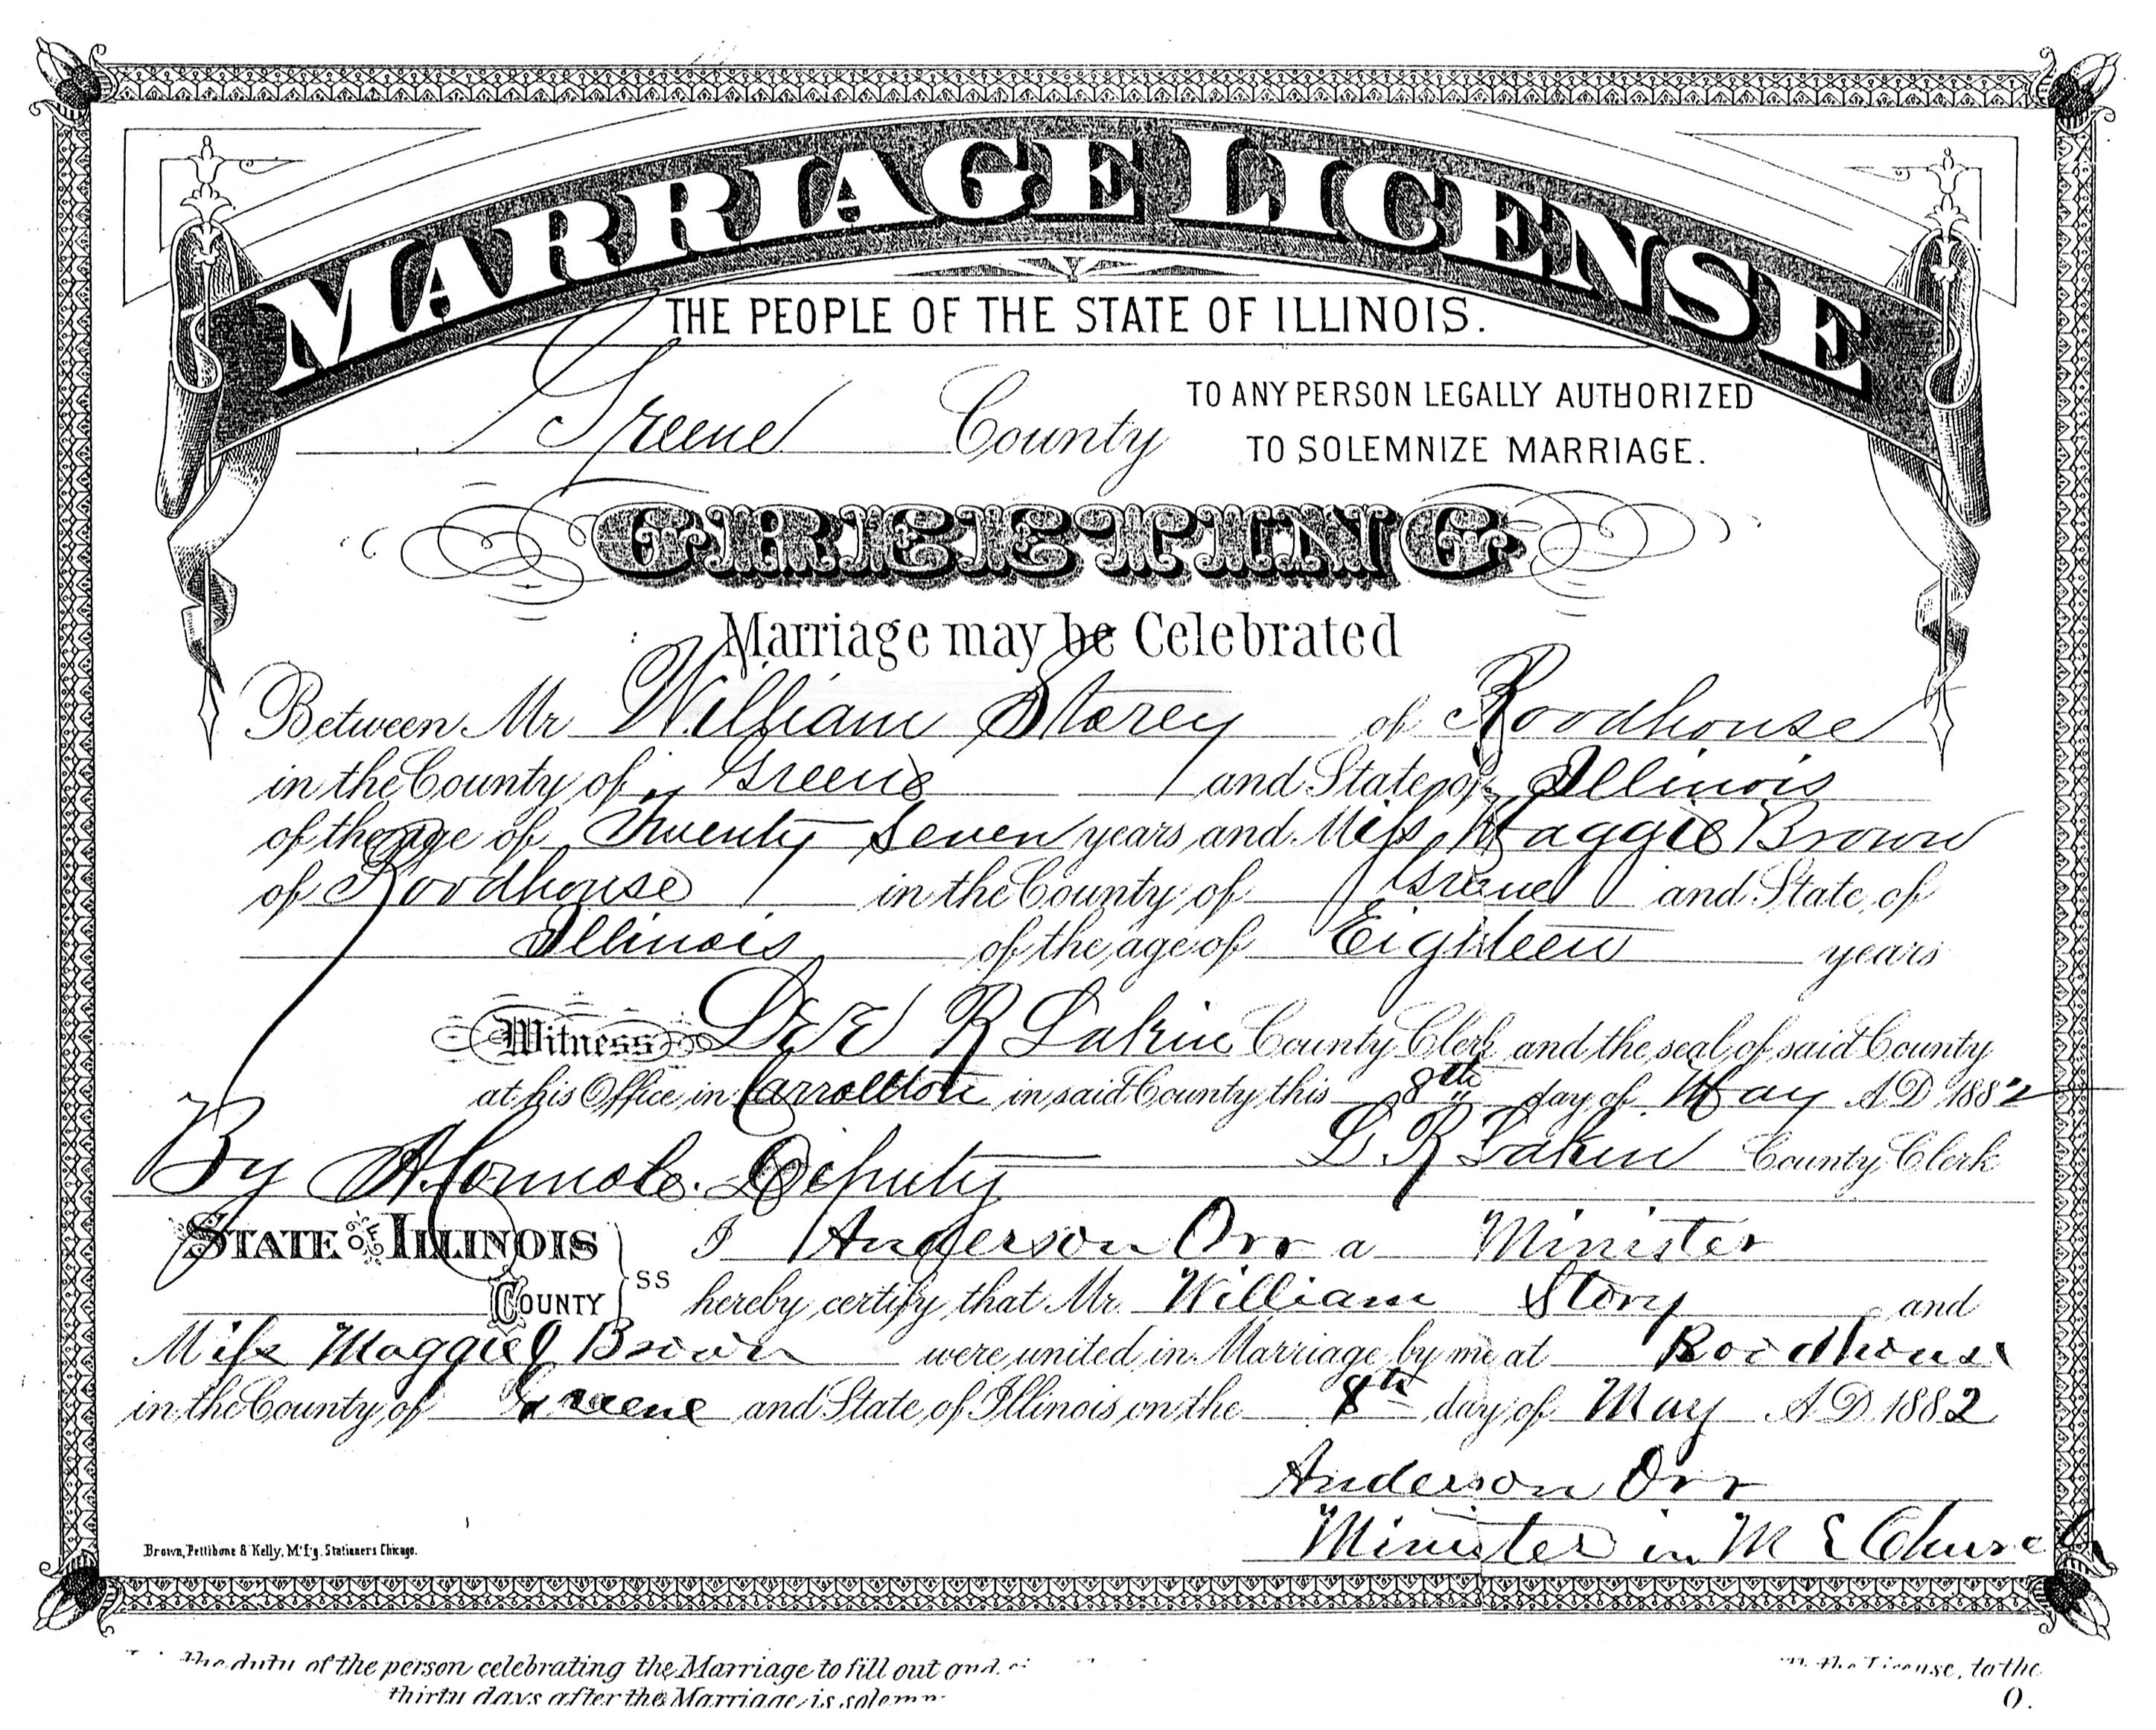 MARRIAGE LICENSE
THE PEOPLE OF THE STATE OF ILLINOIS.
Greene County TO ANY PERSON LEGALLY AUTHORIZED
TO SOLEMNIZE MARRIAGE.
GREETING
Marriage may be Celebrated
Between Mr William Storey of Roodhouse
in the County of Greene and State of Illinois
of the age of Twenty Seven years and Miss Maggie Brown
of Roodhouse in the County of Greene and State of
Illinois of the age of Eighteen years
Witness R Lakin County Clerk and the seal of said County
at his Office in Carrollton in said County this 8th day of May A.D. 1882
L. R. Lakin County Clerk
By Deputy
STATE OF ILLINOIS I Anderson Orr a Minister
COUNTY SS hereby certify that Mr. William Story and
Miss Maggie Brown were united in Marriage by me at Roodhouse
in the County of Greene and State of Illinois on the 8th day of May A.D. 1882
Anderson Orr
Minister in M E Church
Brown, Pettibone & Kelly, M'f'g. Stationers Chicago.
the duty of the person celebrating the Marriage to fill out and the License, to the
thirty days after the Marriage is